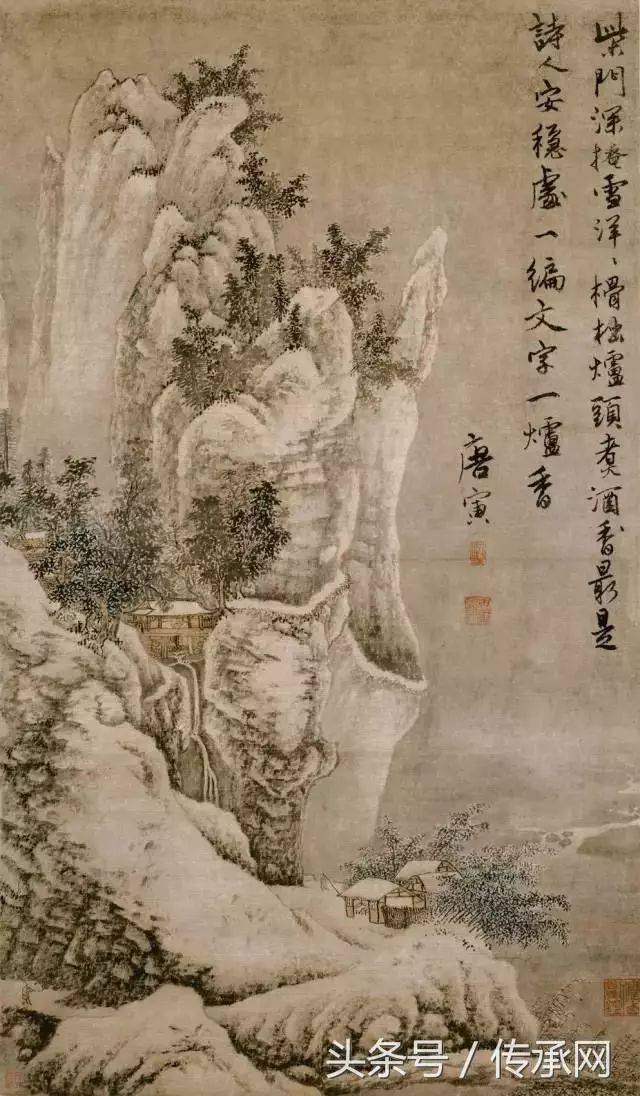 柴門深掩雪洋〻榾柮爐頭煑酒香最是
詩人安穩處一編文字一爐香
唐寅
头条号 / 传承网